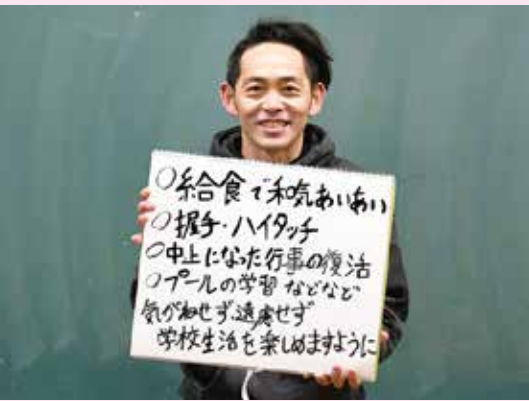 ○給食で和気あいあい
○握手・ハイタッチ
○中止になった行事の復活
○プールの学習などなど
気がねせず遠慮せず
学校生活を楽しめますように